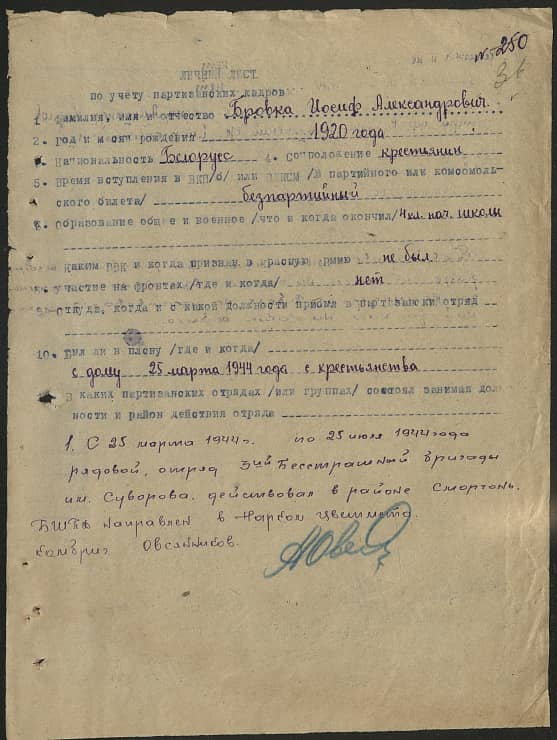 № 250
36
ЛИЧНЫЙ ЛИСТ
по учету партизанских кадров
1. Фамилия, имя и отчество Бровка Иосиф Александрович
2. год и м-сяц рождения 1920 года
Национальность Белорус 4. Соцположение крестьянин
5. Время вступления в ВКП/б/ или ВЛКСМ /№ партийного или комсомоль-
ского билета/ безпартийный
Образование общее и военное /что и когда окончил/ 4 кл. нач. школы
Каким РВК и когда призван в красную армию не был.
участие на фронтах /где и когда/ нет
откуда, когда и с какой должности прибыл в партизански отряд
10. Был ли в плену /где и когда/
с дому 25 марта 1944 года с крестьянства
В каких партизанских отрядах /или группах/ состоял занимая долж
ности и район действия отряда
1. С 25 марта 1944 г. по 25 июля 1944 года
рядовой, отряд 3ий Бесстрашный бригады
им. Суворова. действовал в районе Сморгонь.
БШПД направлен в Нарком цветмета.
комбриг Овсянников.